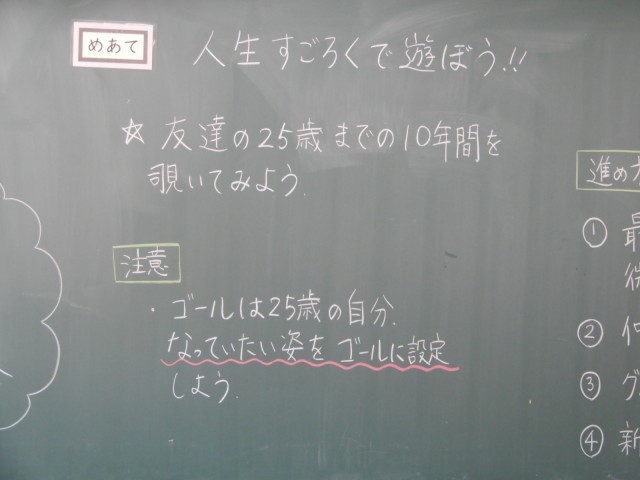 めあて
人生すごろくで遊ぼう!!
☆友達の25歳までの10年間を
覗いてみよう.
注意
・ゴールは25歳の自分.
なっていたい姿をゴールに設定
しよう.
進め
① 最
②
③ グ
④ 新